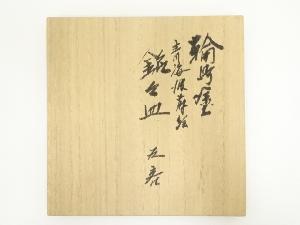 輪島塗
青海波蒔絵
銘々皿